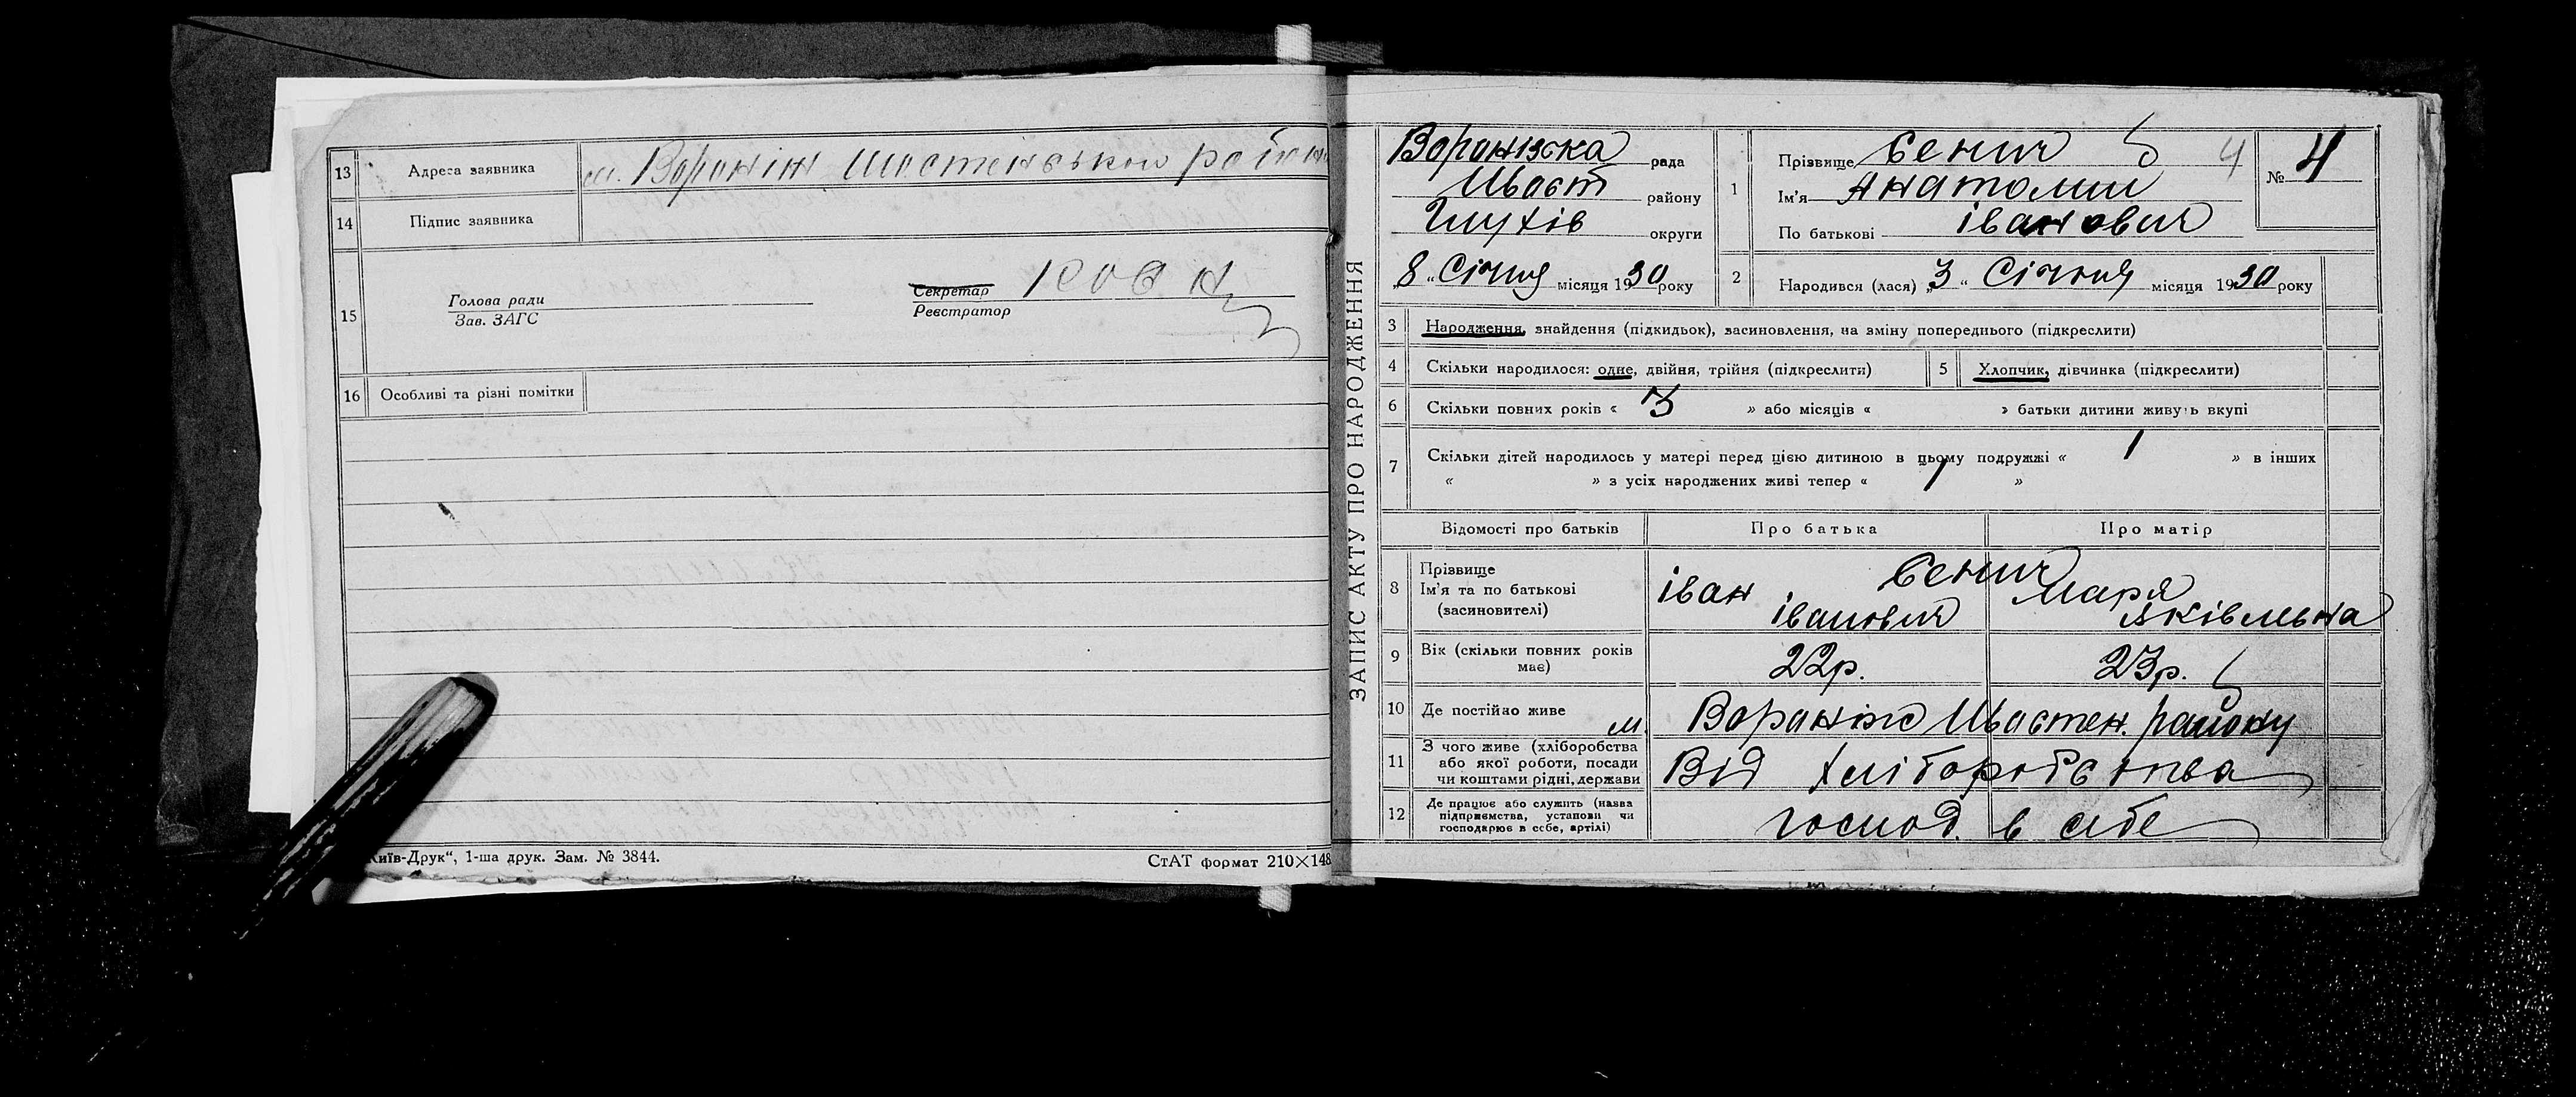 13 Адреса заявника м. Вороніж Шостенськои району
14 Підпис заявника
15 Голова ради
Зав. ЗАГС
Секретар
Реєстратор
16 Особливі та різні помітки
Київ-Друк“, 1-ша друк. Зам. № 3844.
СтАТ формат 210×148
ЗАПИС АКТУ ПРО НАРОДЖЕННЯ
Воронізська рада
Шост району
Глухів округи
„8“ Січня місяця 1930 року
1 Прізвище Сенич 4
Ім'я Анатолий
По батькові Іванович
№ 4
2 Народився (лася) „3“ Січня місяця 1930 року
3 Народження, знайдення (підкидьок), засиновлення, на зміну попереднього (підкреслити)
4 Скільки народилося: одне, двійня, трійня (підкреслити)
5 Хлопчик, дівчинка (підкреслити)
6 Скільки повних років « 3 » або місяців « » батьки дитини живуть вкупі
7 Скільки дітей народилось у матері перед цією дитиною в цьому подружжі « 1 » в інших
« » з усіх народжених живі тепер « 1 »
Відомості про батьків Про батька Про матір
8 Прізвище
Ім'я та по батькові
(засиновителі)
Сенич
Іван
Іванович
Мария
Яківльвна
9 Вік (скільки повних років
має)
22р. 23р.
10 Де постійно живе м. Вороніж Шостен. району
11 З чого живе (хліборобства
або якої роботи, посади
чи коштами рідні, держави
Від хліборобства
12 Де працює або служить (назва
підприємства, установи чи
господарює в себе, артілі)
господ. в себе